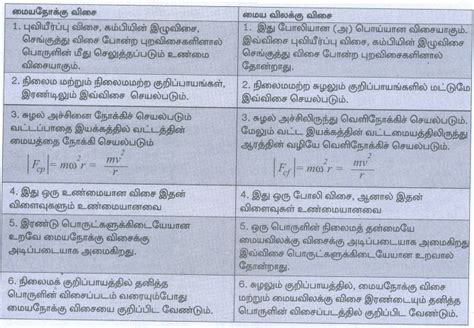 மையநோக்கு விசை
மைய விலக்கு விசை
1. புவியீர்ப்பு விசை, கம்பியின் இழுவிசை,
செங்குத்து விசை போன்ற புறவிசைகளினால்
பொருளின் மீது செலுத்தப்படும் உண்மை
விசையாகும்.
1. இது போலியான (அ) பொய்யான விசையாகும்.
இவ்விசை புவியீர்ப்பு விசை, இழுவிசை,
செங்குத்து விசை போன்ற புறவிசைகளினால்
தோன்றாது.
2. நிலைம மற்றும் நிலைமமற்ற குறிப்பாயங்கள்,
இரண்டிலும் இவ்விசை செயல்படும்.
2. நிலைமமற்ற, சுழலும் குறிப்பாயங்களில் மட்டுமே
இவ்விசை செயல்படும்.
3. சுழல் அச்சினை நோக்கிச் செயல்படும்
வட்டப்பாதை இயக்கத்தில் வட்டத்தின்
மையத்தை நோக்கி செயல்படும்
|F_cp| = mω²r = mv²/r
3. சுழல் அச்சிலிருந்து வெளிநோக்கிச் செயல்படும்.
மேலும் வட்ட இயக்கத்தின் வட்டமையத்திலிருந்து
ஆரத்தின் வழியே வெளிநோக்கிச் செயல்படும்
|F_cf| = mω²r = mv²/r
4. இது ஒரு உண்மையான விசை இதன்
விளைவுகளும் உண்மையானவை
4. இது ஒரு போலி விசை, ஆனால் இதன்
விளைவுகள் உண்மையானவை
5. இரண்டு பொருட்களுக்கிடையேயான
உறவே மையநோக்கு விசைக்கு
அடிப்படையாக அமைகிறது.
5. ஒரு பொருளின் நிலைமத் தன்மையே
மையவிலக்கு விசைக்கு அடிப்படையாக அமைகிறது
இவ்விசை பொருட்களுக்கிடையேயான உறவால்
தோன்றாது.
6. நிலைமக் குறிப்பாயத்தில் தனித்த
பொருளின் விசைப்படம் வரையும்போது
மையநோக்கு விசையை குறிப்பிட வேண்டும்.
6. சுழலும் குறிப்பாயத்தில், மையநோக்கு விசை
மற்றும் மையவிலக்கு விசை இரண்டையும் தனித்த
பொருளின் விசைப்படத்தில் குறிப்பிட வேண்டும்.